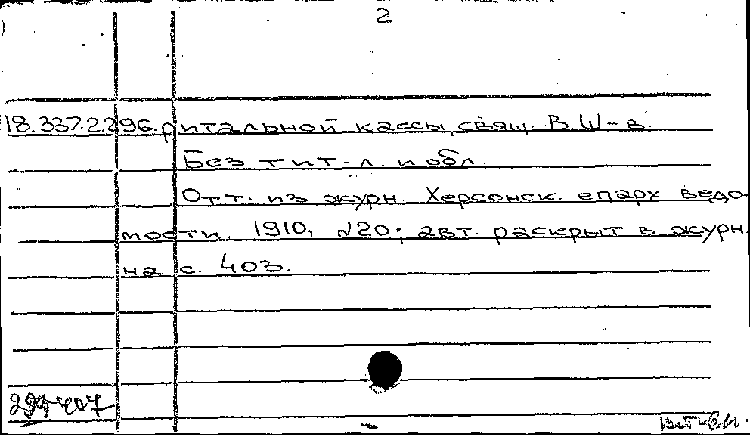 2
18.337.2.296. ритальной кассы, свящ. В. Ш-в.
Без тит. л. и обл.
Отт. из журн. Херсонск. епарх ведо-
мости. 1910, №20; авт. раскрыт в журн.
на с. 403.